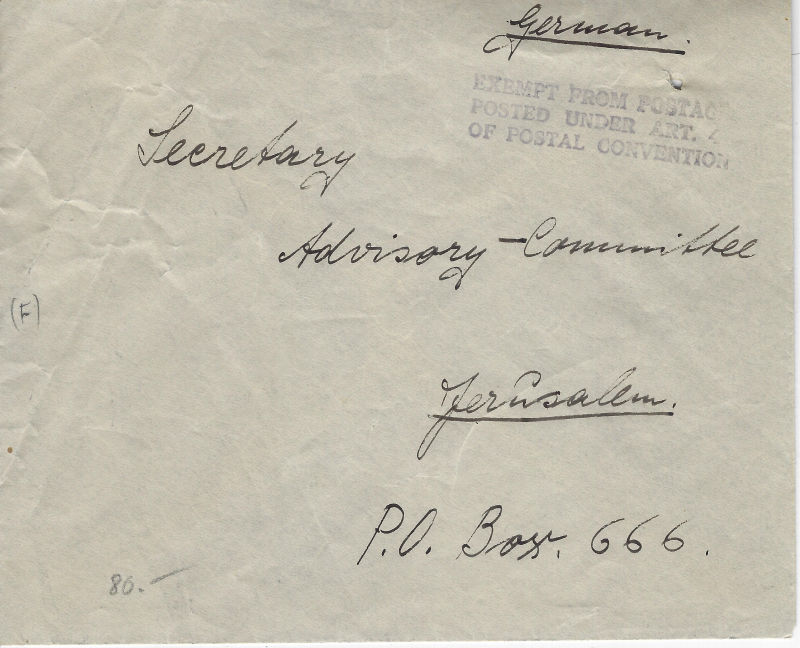 German.
EXEMPT FROM POSTAG
POSTED UNDER ART. 4
OF POSTAL CONVENTION
Secretary
Advisory-Committee
(F)
Jerŭsalem.
P.O. Box. 666.
80.-